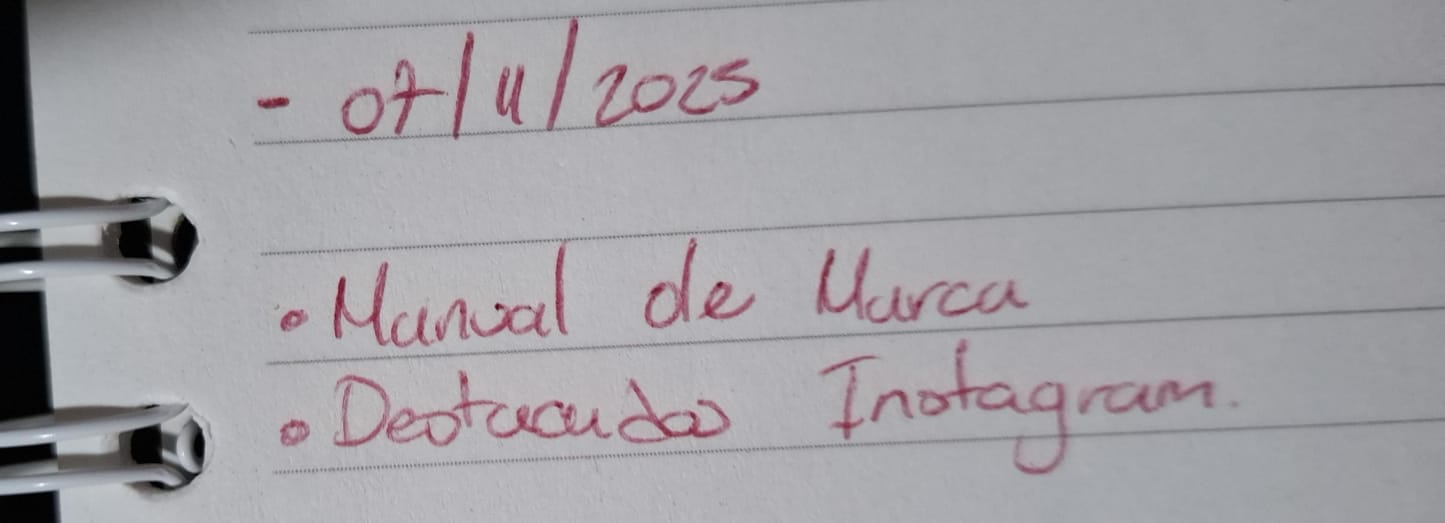 - 07/11/2025
• Manual de Marca
• Destacadas Instagram.